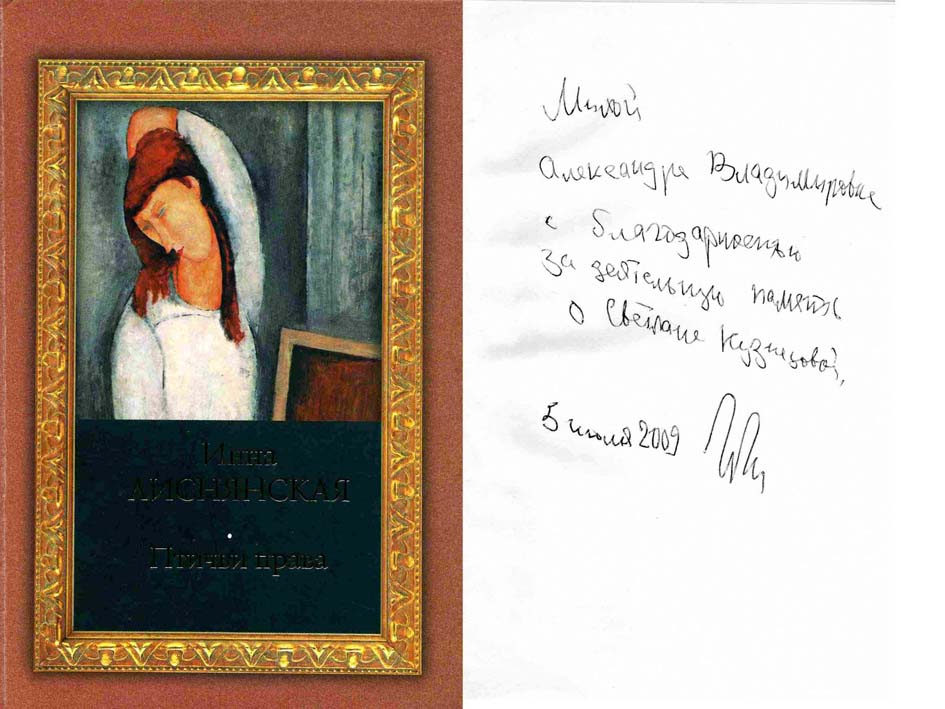 Инна
ЛИСНЯНСКАЯ
Птичьи права
Милой
Александре Владимировне
с благодарностью
за деятельную память
о Светлане Кузнецовой,
5 июля 2009